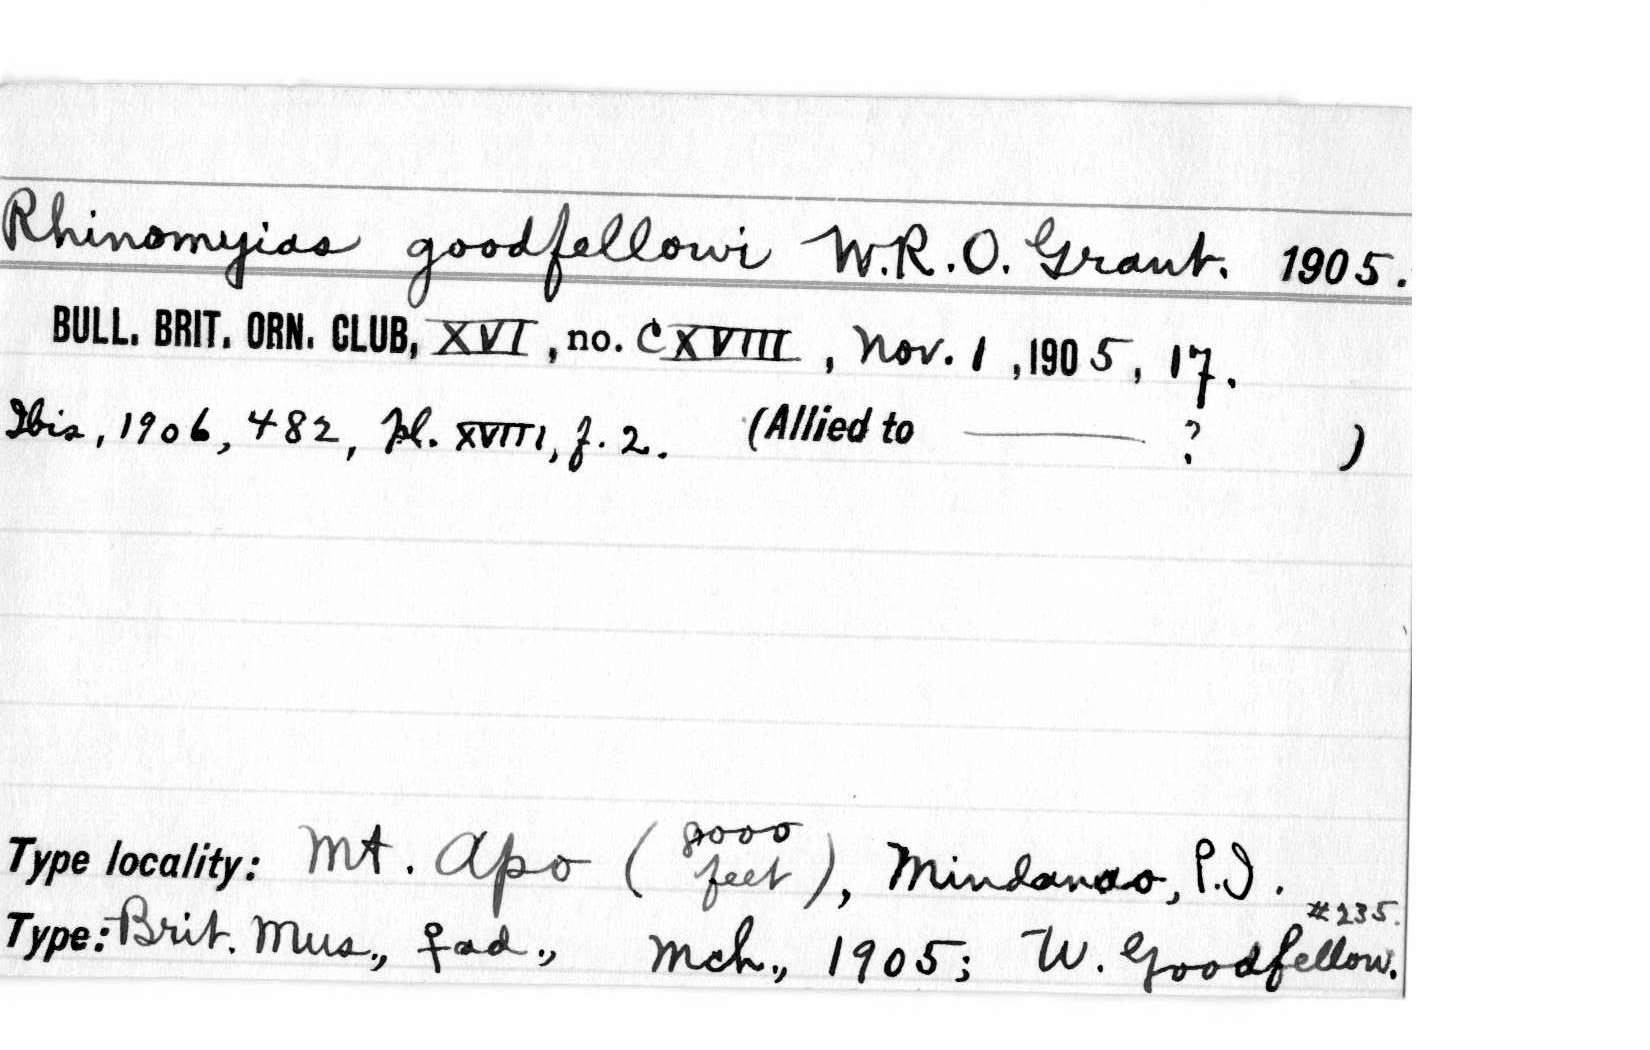 Rhinomyias goodfellowi W.R.O. Grant. 1905.
BULL. BRIT. ORN. CLUB, XVI, no. CXVIII, Nov. 1, 1905, 17.
Ibis, 1906, 482, pl. XVIII, f. 2. (Allied to ——— ? )
Type locality: Mt. Apo (8000 feet), Mindanao, P.I.
#235.
Type: Brit. Mus., ♀ ad., Mch., 1905; W. Goodfellow.